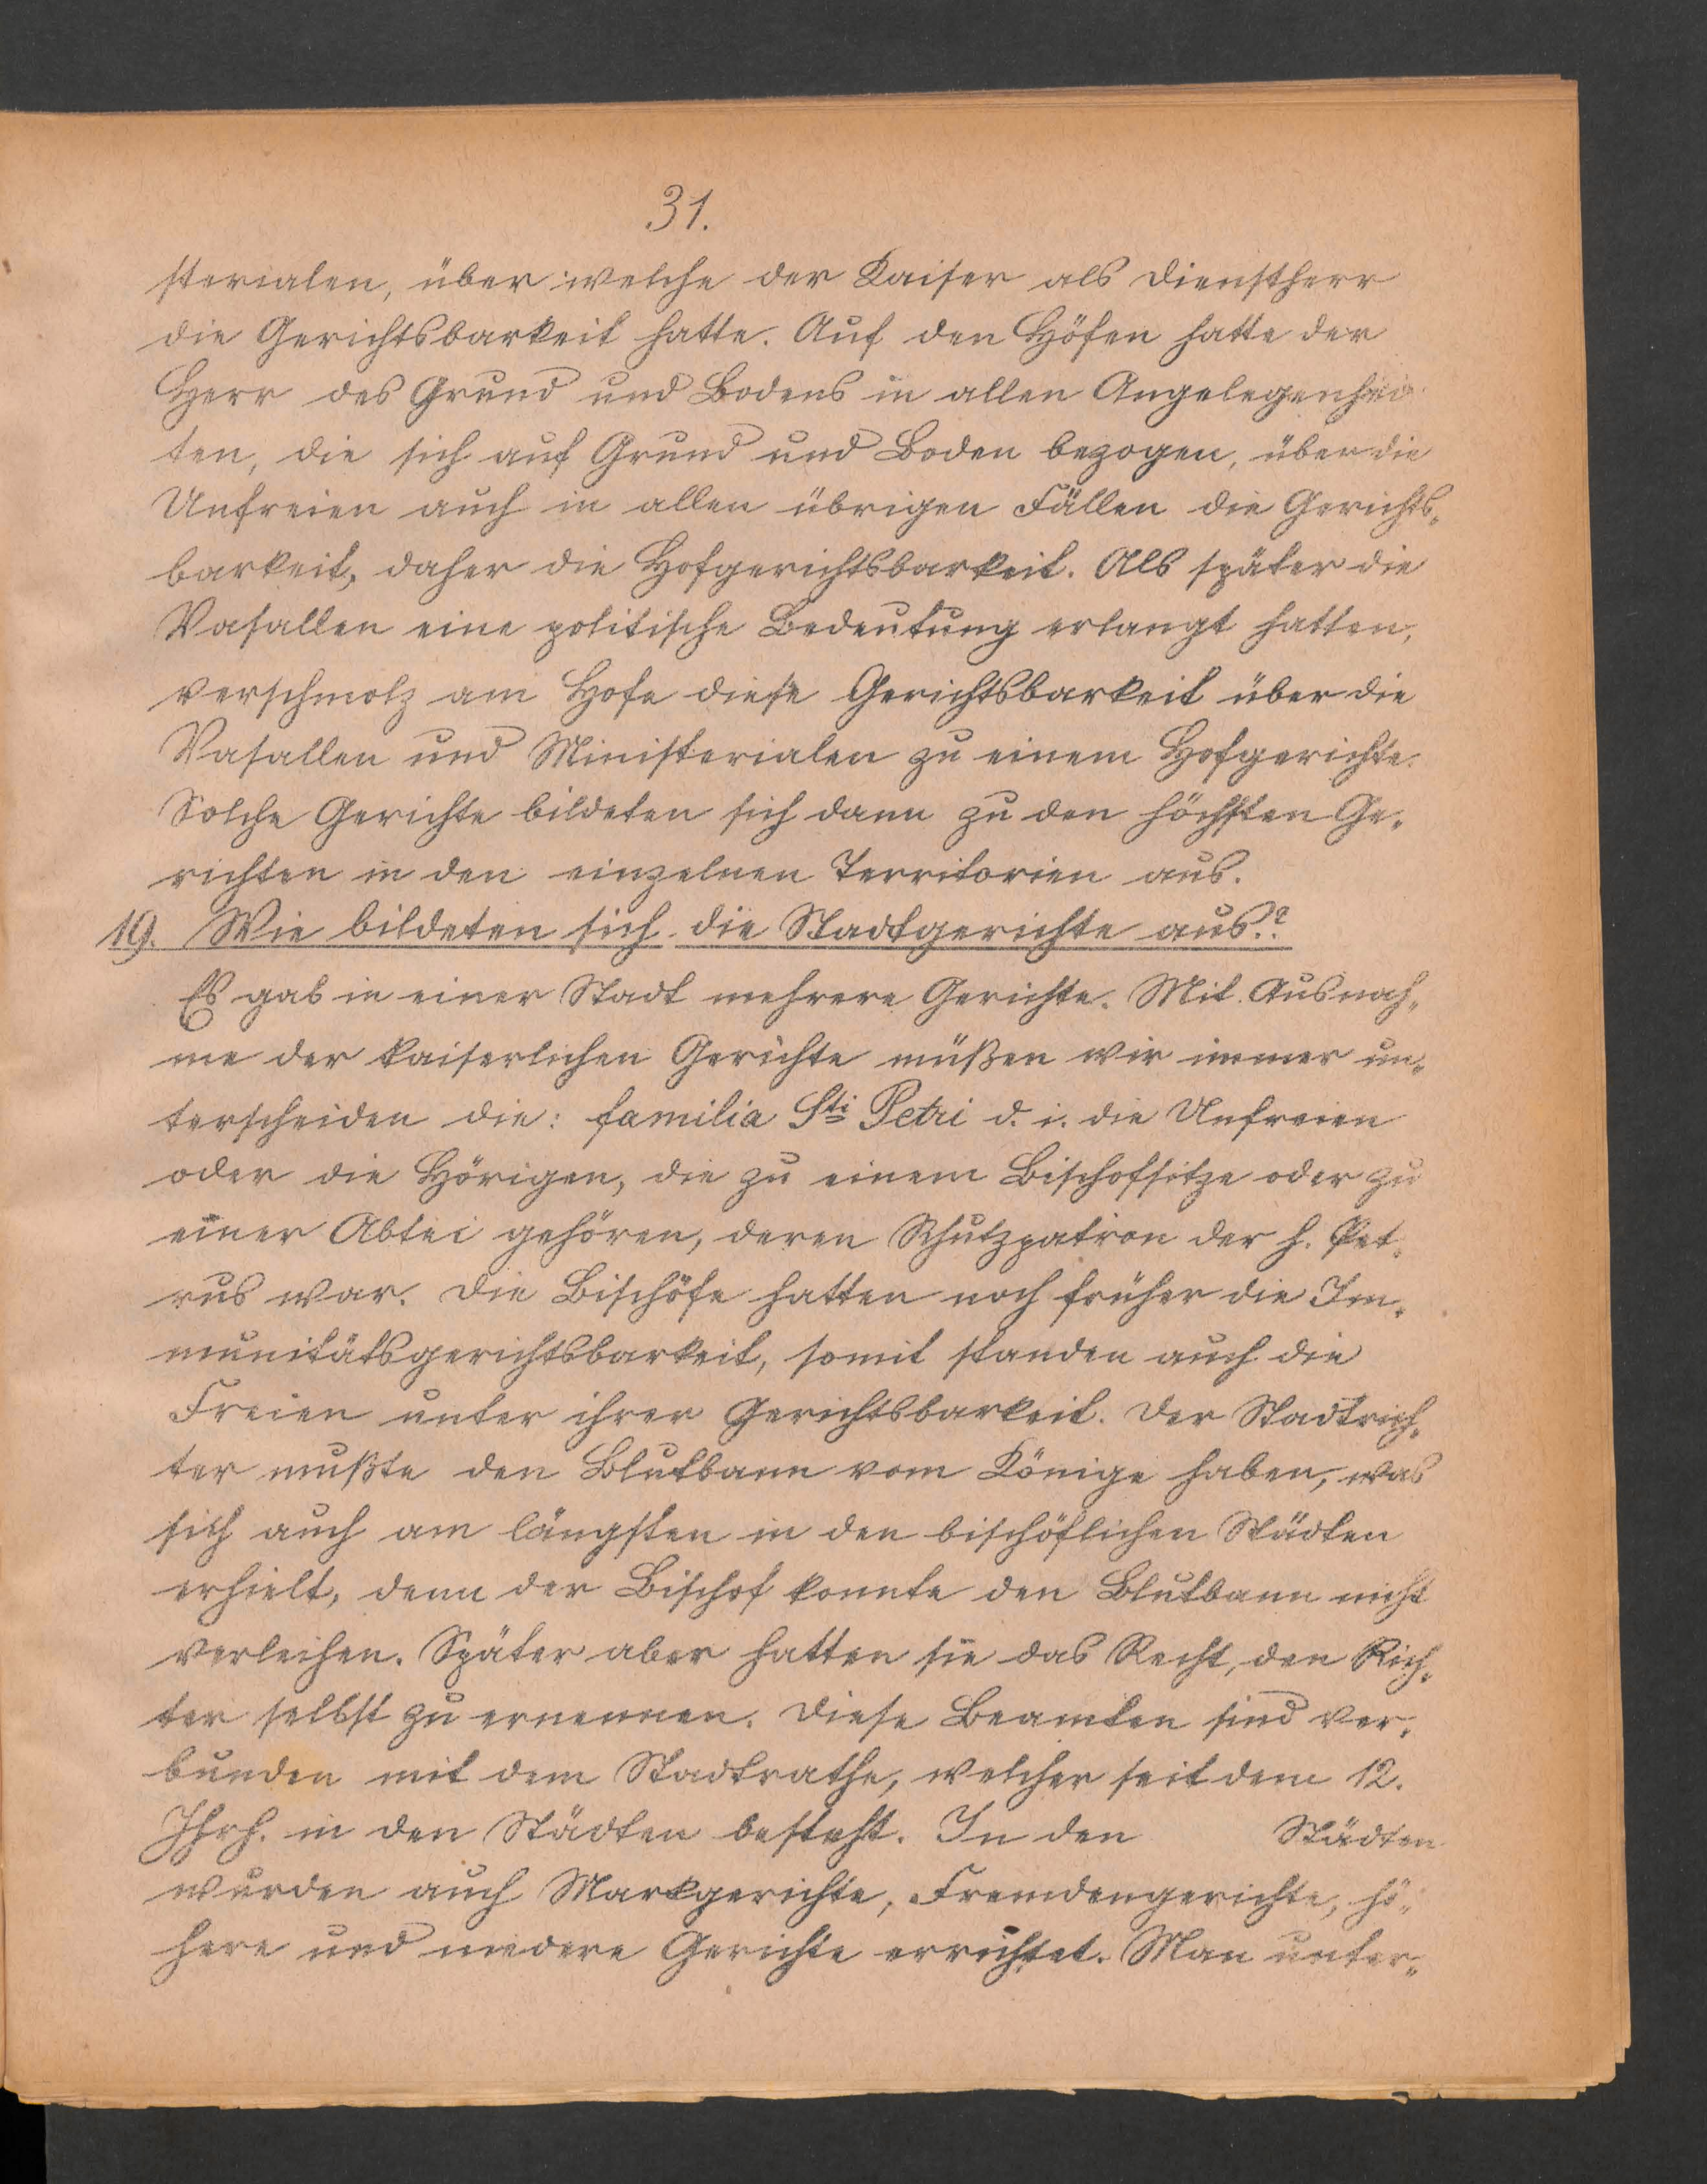 31.
sterialen, über welche der Kaiser als Dienstherr
die Gerichtsbarkeit hatte. Auf den Höfen hatte der
Herr des Grund und Bodens in allen Angelegenhei
ten, die sich auf Grund und Boden bezogen, über die
Unfreien auch in allen übrigen Fällen die Gerichts„
barkeit, daher die Hofgerichtsbarkeit. Als später die
Vasallen eine politische Bedeutung erlangt hatten,
verschmolz am Hofe diese Gerichtsbarkeit über die
Vasallen und Ministerialen zu einem Hofgerichte.
Solche Gerichte bildeten sich dann zu den höchsten Ge„
richten in den einzelnen Territorien aus.
19. Wie bildeten sich die Stadtgerichte aus?
Es gab in einer Stadt mehrere Gerichte. Mit Ausnah„
me der kaiserlichen Gerichte müßen wir immer un„
terscheiden die: familia Sti Petri d. i. die Unfreien
oder die Hörigen, die zu einem Bischofsitze oder zu
einer Abtei gehören, deren Schutzpatron der h. Pet„
rus war. Die Bischöfe hatten noch früher die Im„
munitätsgerichtsbarkeit, somit standen auch die
Freien unter ihrer Gerichtsbarkeit. Der Stadtrich„
ter mußte den Blutbann vom Könige haben, was
sich auch am längsten in den bischöflichen Städten
erhielt, denn der Bischof konnte den Blutbann nicht
verleihen. Später aber hatten sie das Recht, den Rich„
ter selbst zu ernennen. Diese Beamten sind ver„
bunden mit dem Stadtrathe, welcher seit dem 12.
Jhrh. in den Städten besteht. In den Städten
wurden auch Markgerichte, Fremdengerichte, hö„
here und niedere Gerichte errichtet. Man unter„